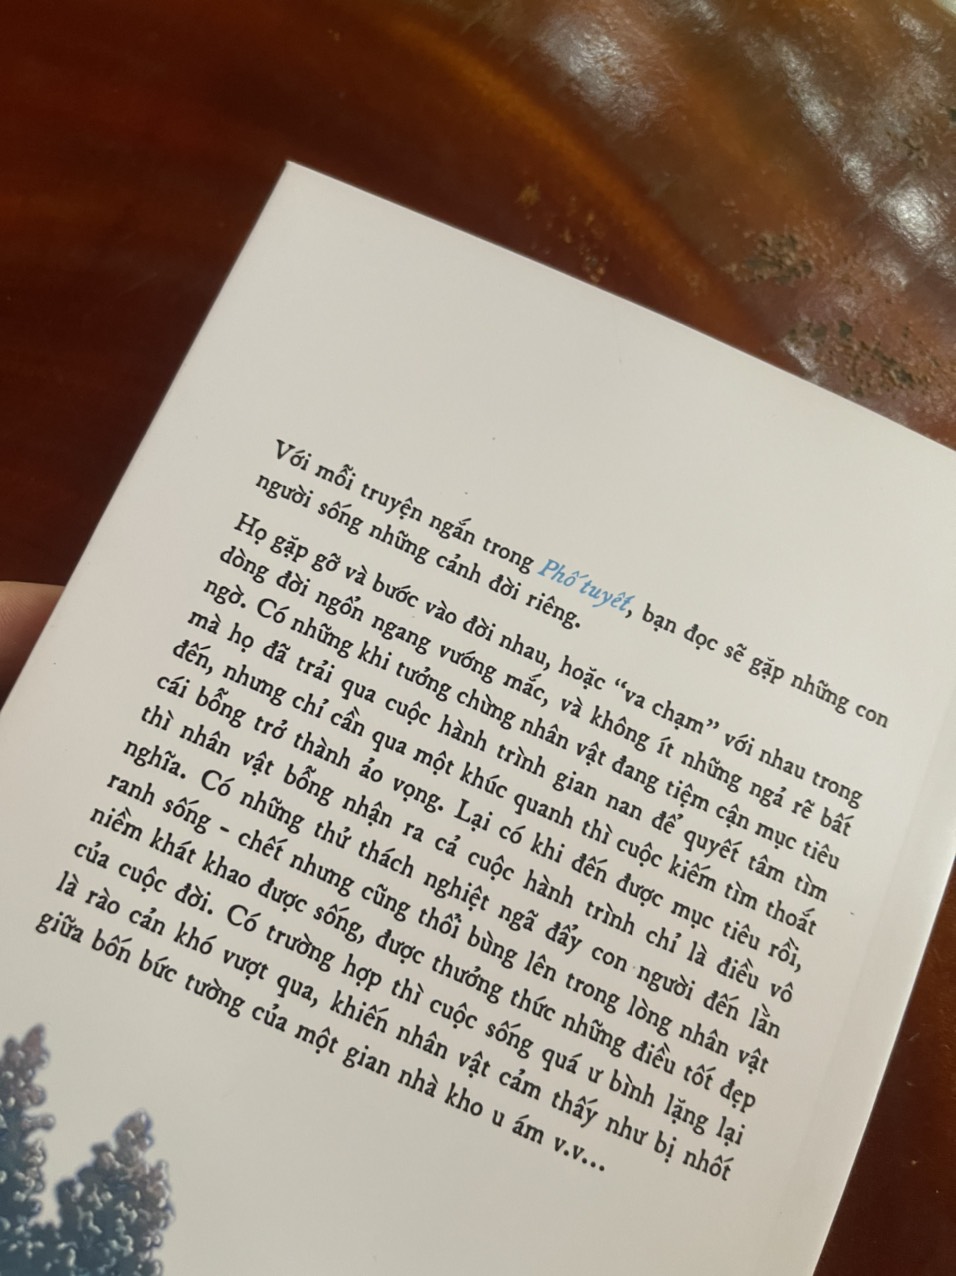 Với mỗi truyện ngắn trong Phố tuyết, bạn đọc sẽ gặp những con
người sống những cảnh đời riêng.
Họ gặp gỡ và bước vào đời nhau, hoặc “va chạm” với nhau trong
dòng đời ngổn ngang vướng mắc, và không ít những ngả rẽ bất
ngờ. Có những khi tưởng chừng nhân vật đang tiệm cận mục tiêu
mà họ đã trải qua cuộc hành trình gian nan để quyết tâm tìm
đến, nhưng chỉ cần qua một khúc quanh thì cuộc kiếm tìm thoắt
cái bỗng trở thành ảo vọng. Lại có khi đến được mục tiêu rồi,
thì nhân vật bỗng nhận ra cả cuộc hành trình chỉ là điều vô
nghĩa. Có những thử thách nghiệt ngã đẩy con người đến lằn
ranh sống - chết nhưng cũng thổi bùng lên trong lòng nhân vật
niềm khát khao được sống, được thưởng thức những điều tốt đẹp
của cuộc đời. Có trường hợp thì cuộc sống quá ư bình lặng lại
là rào cản khó vượt qua, khiến nhân vật cảm thấy như bị nhốt
giữa bốn bức tường của một gian nhà kho u ám v.v...